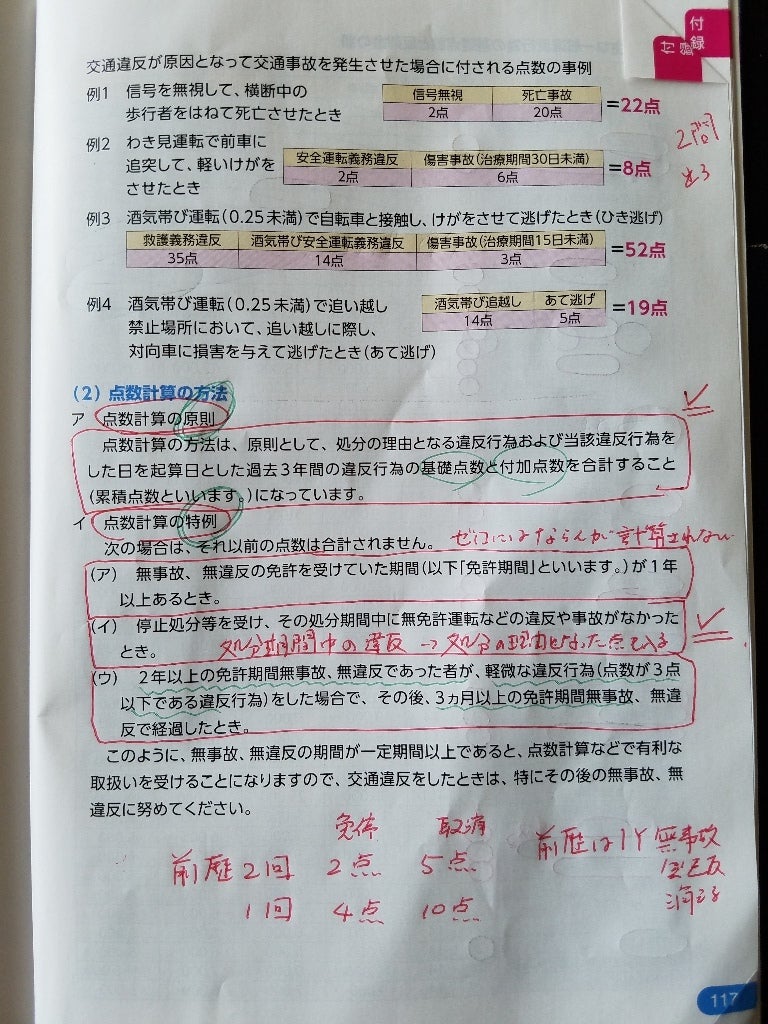 付録
付録
交通違反が原因となって交通事故を発生させた場合に付される点数の事例
例1 信号を無視して、横断中の
歩行者をはねて死亡させたとき
信号無視 死亡事故
2点 20点
=22点
2問
例2 わき見運転で前車に
追突して、軽いけがを
させたとき
安全運転義務違反 傷害事故(治療期間30日未満)
2点 6点
=8点
例3 酒気帯び運転(0.25未満)で自転車と接触し、けがをさせて逃げたとき(ひき逃げ)
救護義務違反 酒気帯び安全運転義務違反 傷害事故(治療期間15日未満)
35点 14点 3点
=52点
例4 酒気帯び運転(0.25未満)で追い越し
禁止場所において、追い越しに際し、
対向車に損害を与えて逃げたとき(あて逃げ)
酒気帯び追越し あて逃げ
14点 5点
=19点
(2) 点数計算の方法
ア 点数計算の原則
点数計算の方法は、原則として、処分の理由となる違反行為および当該違反行為を
した日を起算日とした過去3年間の違反行為の基礎点数と付加点数を合計すること
(累積点数といいます。)になっています。
イ 点数計算の特例
次の場合は、それ以前の点数は合計されません。 ゼロにはならんが計算されない
(ア) 無事故、無違反の免許を受けていた期間(以下「免許期間」といいます。)が1年
以上あるとき。
(イ) 停止処分等を受け、その処分期間中に無免許運転などの違反や事故がなかった
とき。 処分期間中の違反→処分の理由となった点も入る
(ウ) 2年以上の免許期間無事故、無違反であった者が、軽微な違反行為(点数が3点
以下である違反行為)をした場合で、その後、3ヵ月以上の免許期間無事故、無違
反で経過したとき。
このように、無事故、無違反の期間が一定期間以上であると、点数計算などで有利な
取扱いを受けることになりますので、交通違反をしたときは、特にその後の無事故、無
違反に努めてください。
免停 取消
前歴2回 2点 5点
1回 4点 10点
前歴は1Y無事故
消える
117